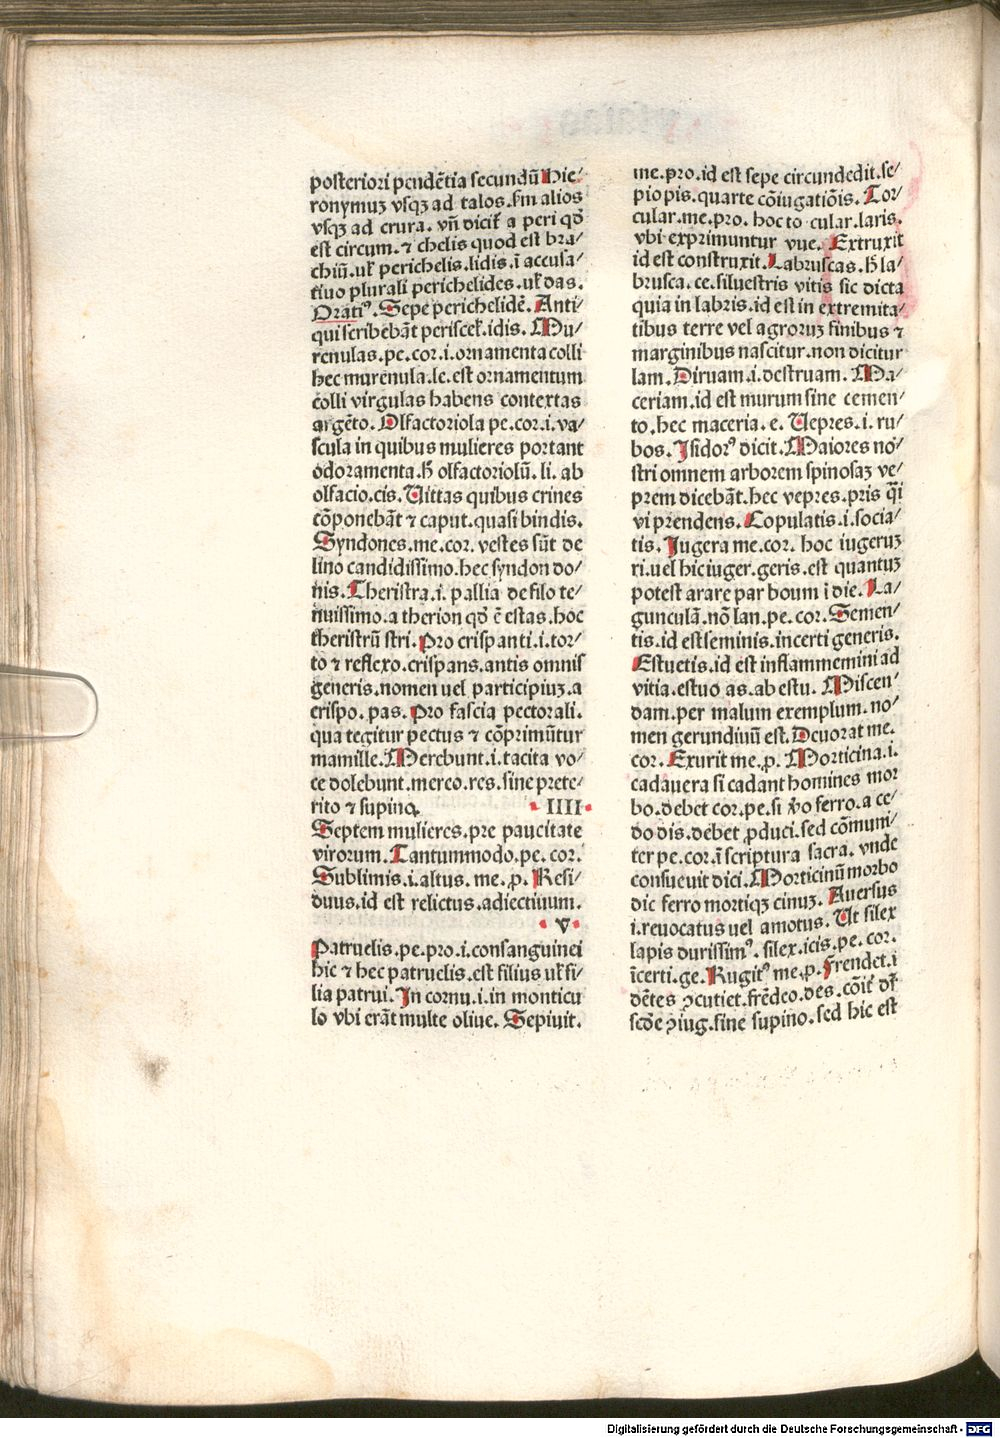 posteriori pendētia secundū Hie⸗
ronymuꝫ vsqꝫ ad talos. ẜm alios
vsqꝫ ad crura. vn̄ dicit̃ a peri qđ
est circum. ⁊ chelis quod est bra⸗
chiū. ul̃ perichelis. lidis. ī accusa⸗
tiuo plurali perichelides. ul̃ das.
Oratiꝰ. Sepe perichelidē. Anti⸗
qui scribebāt periscel̃. idis. Mu⸗
renulas. pe. cor. i. ornamenta colli
hec murenula. le. est ornamentum
colli virgulas habens contextas
argēto. Olfactoriola pe. cor. i. va⸗
scula in quibus mulieres portant
odoramenta. h̃ olfactoriolū. li. ab
olfacio. cis. Vittas quibus crines
cōponebāt ⁊ caput. quasi bindis.
Syndones. me. cor. vestes sūt de
lino candidissimo. hec syndon do⸗
nis. Theristra. i. pallia de filo te⸗
nuissimo. a therion qđ ē estas. hoc
theristrū stri. Pro crispanti. i. tor⸗
to ⁊ reflexo. crispans. antis omnis
generis. nomen uel participiuꝫ. a
crispo. pas. Pro fascia pectorali.
qua tegitur pectus ⁊ cōprimūtur
mamille. Merebunt. i. tacita vo⸗
ce dolebunt. mereo. res. sine prete⸗
rito ⁊ supino. IIII
Septem mulieres. pre paucitate
virorum. Tantummodo. pe. cor.
Sublimis. i. altus. me. ꝓ. Resi⸗
duus. id est relictus. adiectiuum.
V
Patruelis. pe. pro. i. consanguinei
hic ⁊ hec patruelis. est filius ul̃ fi⸗
lia patrui. In cornu. i. in monticu
lo vbi erāt multe oliue. Sepiuit.
me. pro. id est sepe circundedit. se⸗
pio pis. quarte cōiugatiōis. Tor⸗
cular. me. pro. hoc to cular. laris.
vbi exprimuntur vue. Extruxit
id est construxit. Labruscas. h̃ la⸗
brusca. ce. siluestris vitis sic dicta
quia in labris. id est in extremita⸗
tibus terre vel agroruꝫ finibus ⁊
marginibus nascitur. non dicitur
lam. Diruam. i. destruam. Ma⸗
ceriam. id est murum sine cemen⸗
to. hec maceria. e. Vepres. i. ru⸗
bos. Isidorꝰ dicit. Maiores no⸗
stri omnem arborem spinosaꝫ ve⸗
prem dicebāt. hec vepres. pris q̃i
vi prendens. Copulatis. i. socia⸗
tis. Iugera me. cor. hoc iugeruꝫ
ri. uel hic iuger. geris. est quantuꝫ
potest arare par boum ī die. La⸗
gunculā. nō lan. pe. cor. Semen⸗
tis. id est seminis. incerti generis.
Estuetis. id est inflammemini ad
vitia. estuo as. ab estu. Miscen⸗
dam. per malum exemplum. no⸗
men gerundiuū est. Deuorat me.
cor. Exurit me. ꝓ. Morticina. i.
cadauera si cadant homines mor
bo. debet cor. pe. si v̄o ferro. a ce⸗
do dis. debet ꝓduci. sed cōmuni⸗
ter pe. cor. ī scriptura sacra. vnde
consueuit dici. Morticinū morbo
dic ferro mortiqꝫ cinuꝫ. Auersus
i. reuocatus uel amotus. Vt silex
lapis durissimꝰ. silex. icis. pe. cor.
īcerti. ge. Rugitꝰ me. ꝓ. Frendet. i
dētes ꝯcutiet. frēdeo. des. cōit̃ dr̄
scđe ꝯiug. sine supino. sed hic est
Digitalisierung gefördert durch die Deutsche Forschungsgemeinschaft - DFG